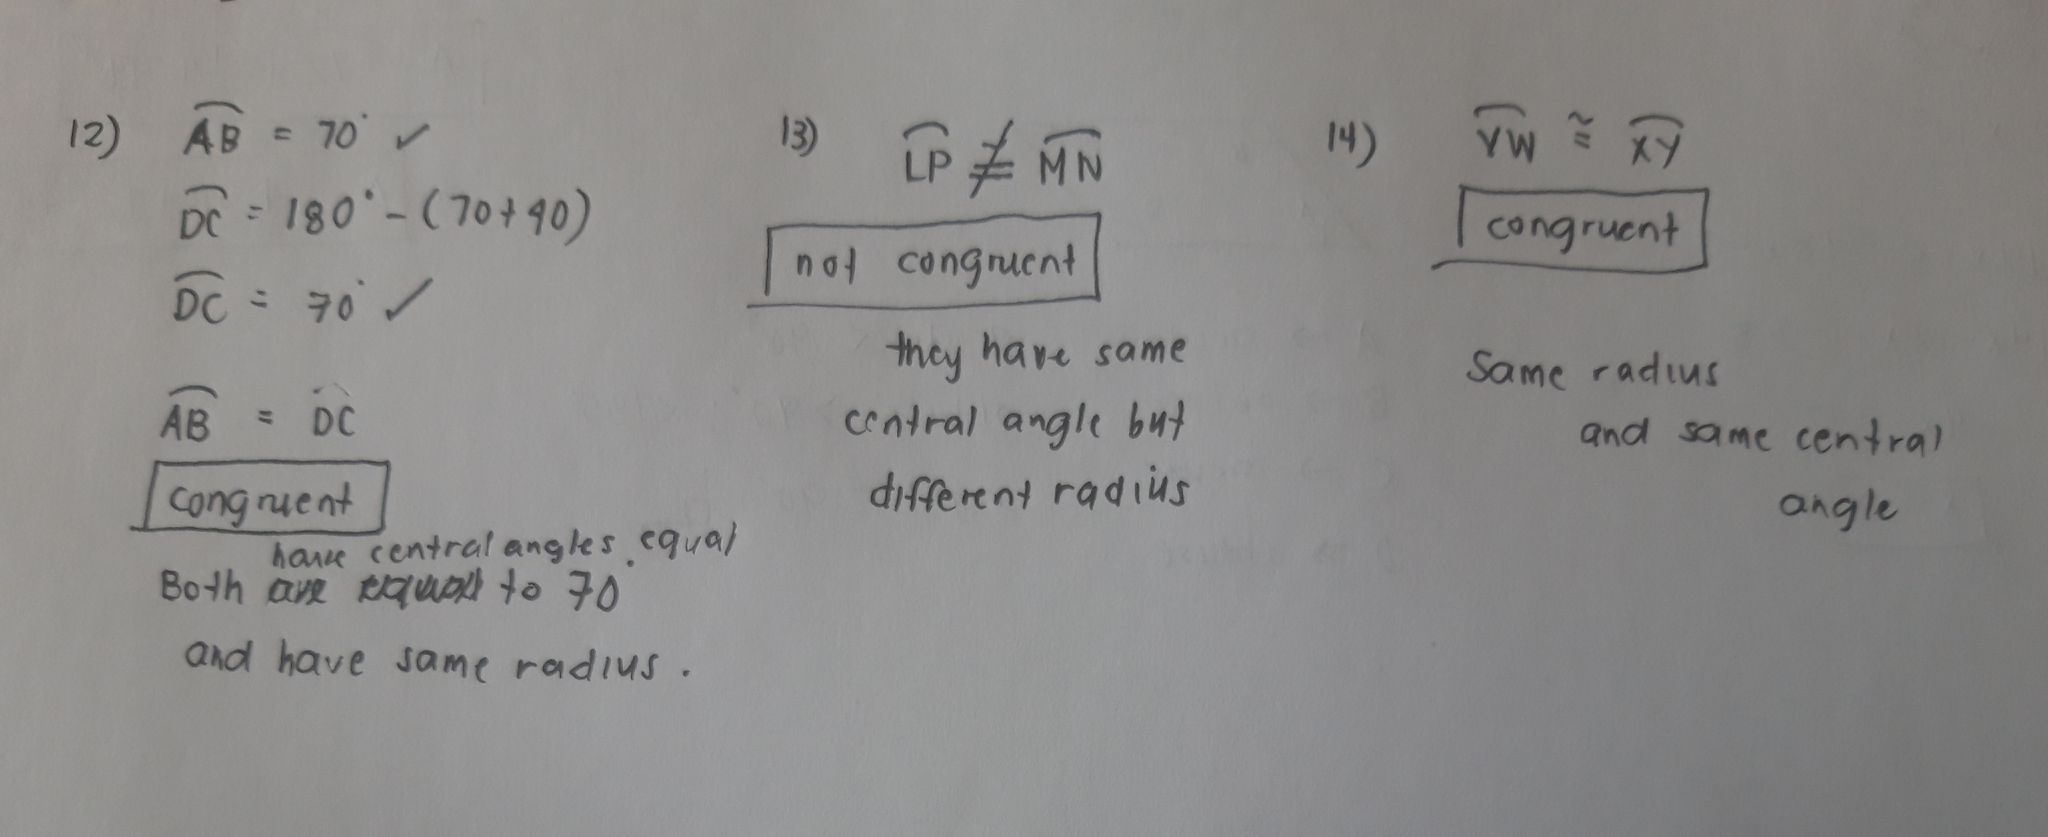 12) AB = 70° ✓
DC = 180° - (70+40)
DC = 70° ✓
AB = DC
congruent
have central angles equal
Both to 70°
and have same radius.
13) LP ≇ MN
not congruent
they have same
central angle but
different radius
14) VW ≅ XY
congruent
same radius
and same central
angle